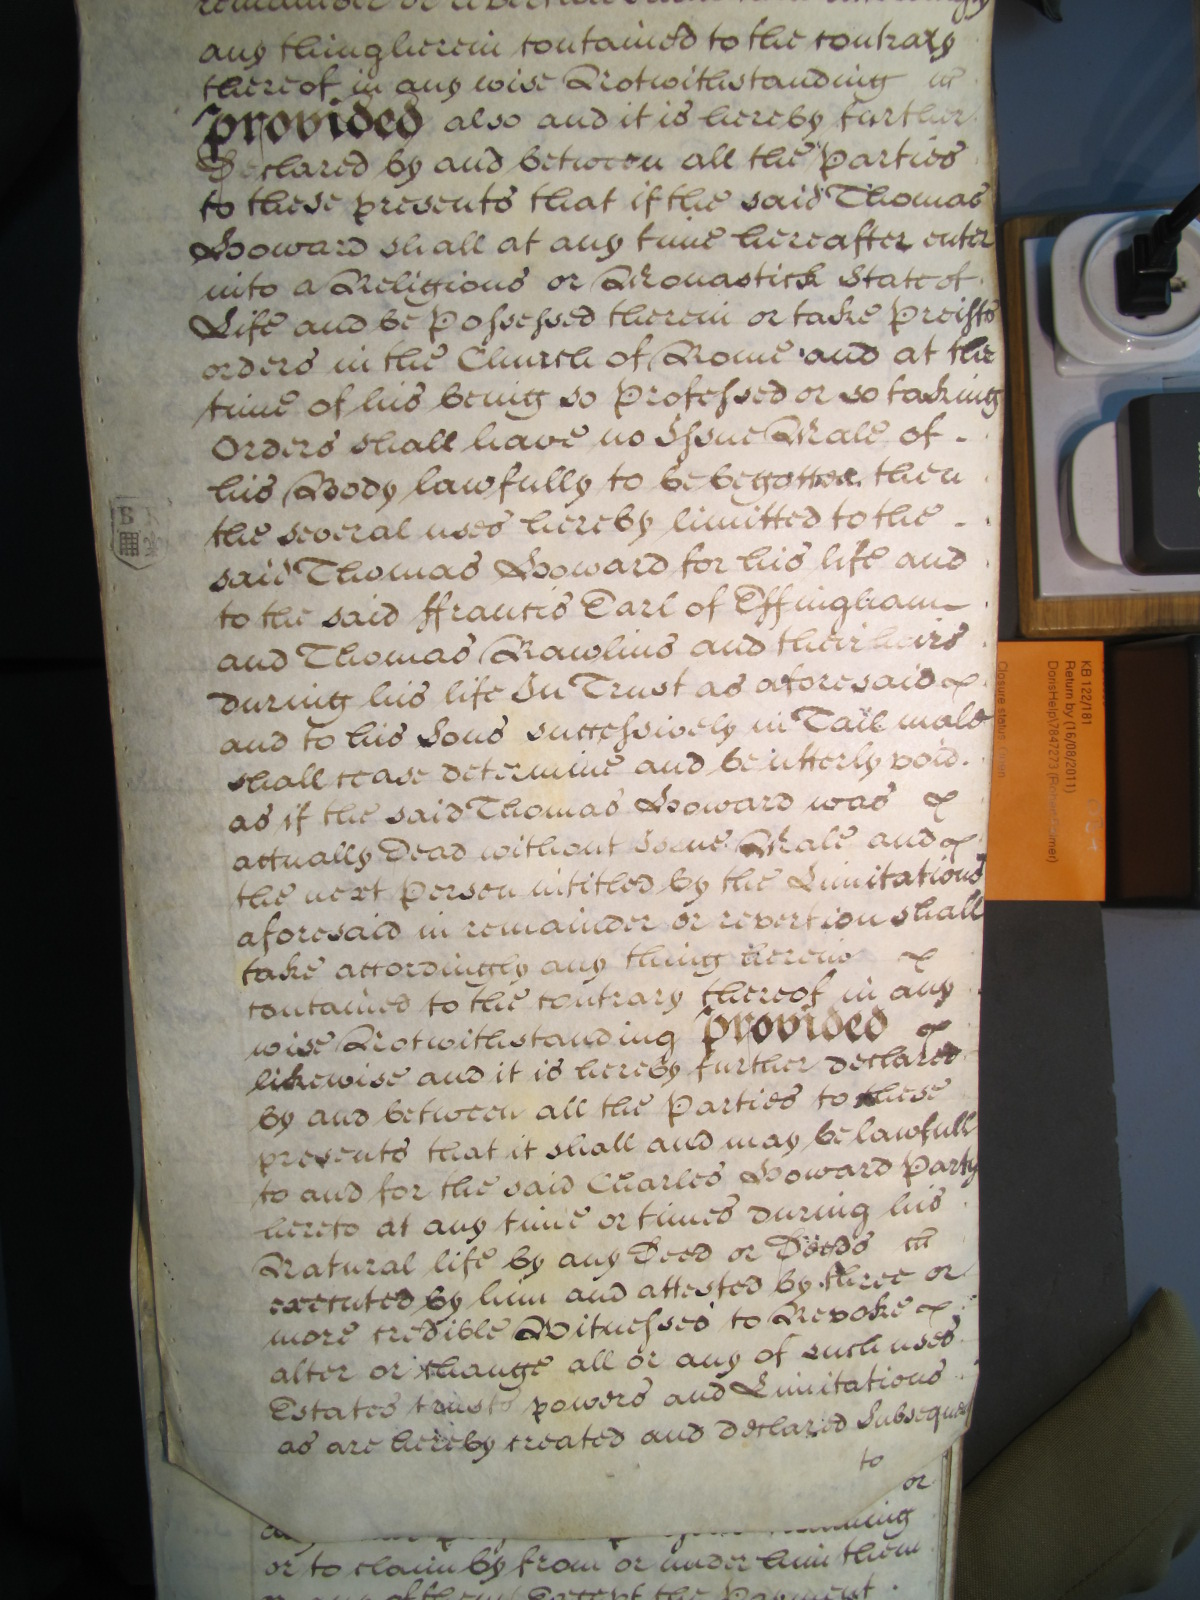 remainder or
any thing herein contained to the contrary
thereof in any wise Notwithstanding
Provided also and it is hereby further
Declared by and between all the Parties
to these presents that if the said Thomas
Howard shall at any time hereafter enter
into a Religious or Monastick State of
Life and be Possessed therein or take Preists
orders in the Church of Rome and at the
time of his being so Professed or so taking
Orders shall have no Issue Male of -
his Body lawfully to be begotten then
the several uses hereby limitted to the -
said Thomas Howard for his life and
to the said ffrancis Earl of Effingham
and Thomas Rawlins and their heirs
during his life In Trust as aforesaid
and to his Sons successively in Tail male
shall cease determine and be utterly void.
as if the said Thomas Howard was
actually Dead without Issue Male and
the next Person intitled by the Limitations
aforesaid in remainder or revertion shall
take accordingly any thing herein
contained to the contrary thereof in any
wise Notwithstanding Provided
likewise and it is hereby further declared
by and between all the Parties to these
presents that it shall and may be lawfull
to and for the said Charles Howard Party
hereto at any time or times during his
Natural life by any Deed or Deeds
executed by him and attested by three or
more credible Witnesses to Revoke
alter or change all or any of such uses
Estates trusts powers and Limitations
as are hereby created and declared Subsequent
to
or
or to claim by from or under him them
or any of them Except the Payment
KB 122/181
Return by (16/08/2011)
Closure status: Open